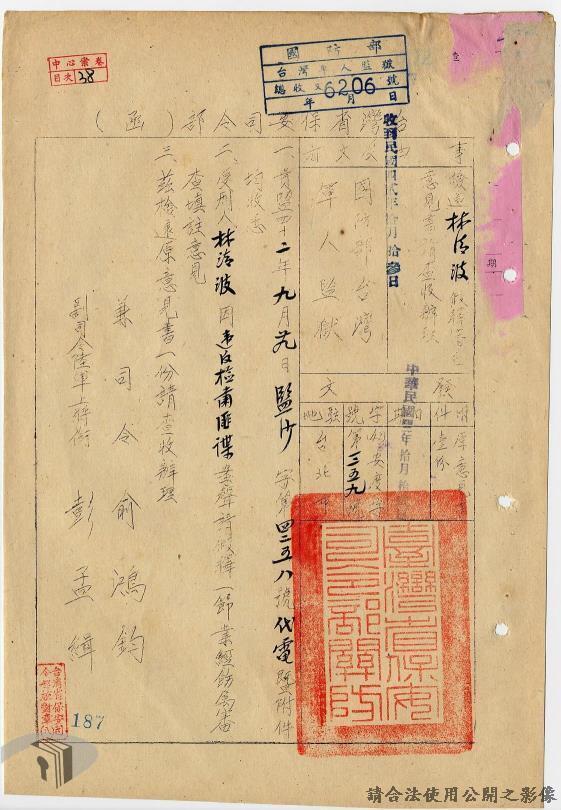 中心案卷
目次 38
國防部
台灣軍人監獄
總收文 號
6206
年 月 日
收到民國四貳年拾月拾參日
台灣省保安司令部(函)
事
檢送林淩波假釋
意見書請查收辦理
文
國防部台灣
軍人監獄
附件
原意見
壹份
中華民國 年拾月拾
文
字號
安度字
第一三五九號
駐地
台北
一、貴監四十二年九月 日監少字第四二五八號代電暨附件
均收悉
二、受刑人林淩波因違反檢肅匪諜案聲請假釋一節業經飭屬審
查填註意見
三、茲檢送原意見書一份請查收辦理
兼司令俞鴻鈞
副司令陸軍上將銜彭孟緝
臺灣省保安司令部關防
台灣省保安司令部
187
請合法使用公開之影像